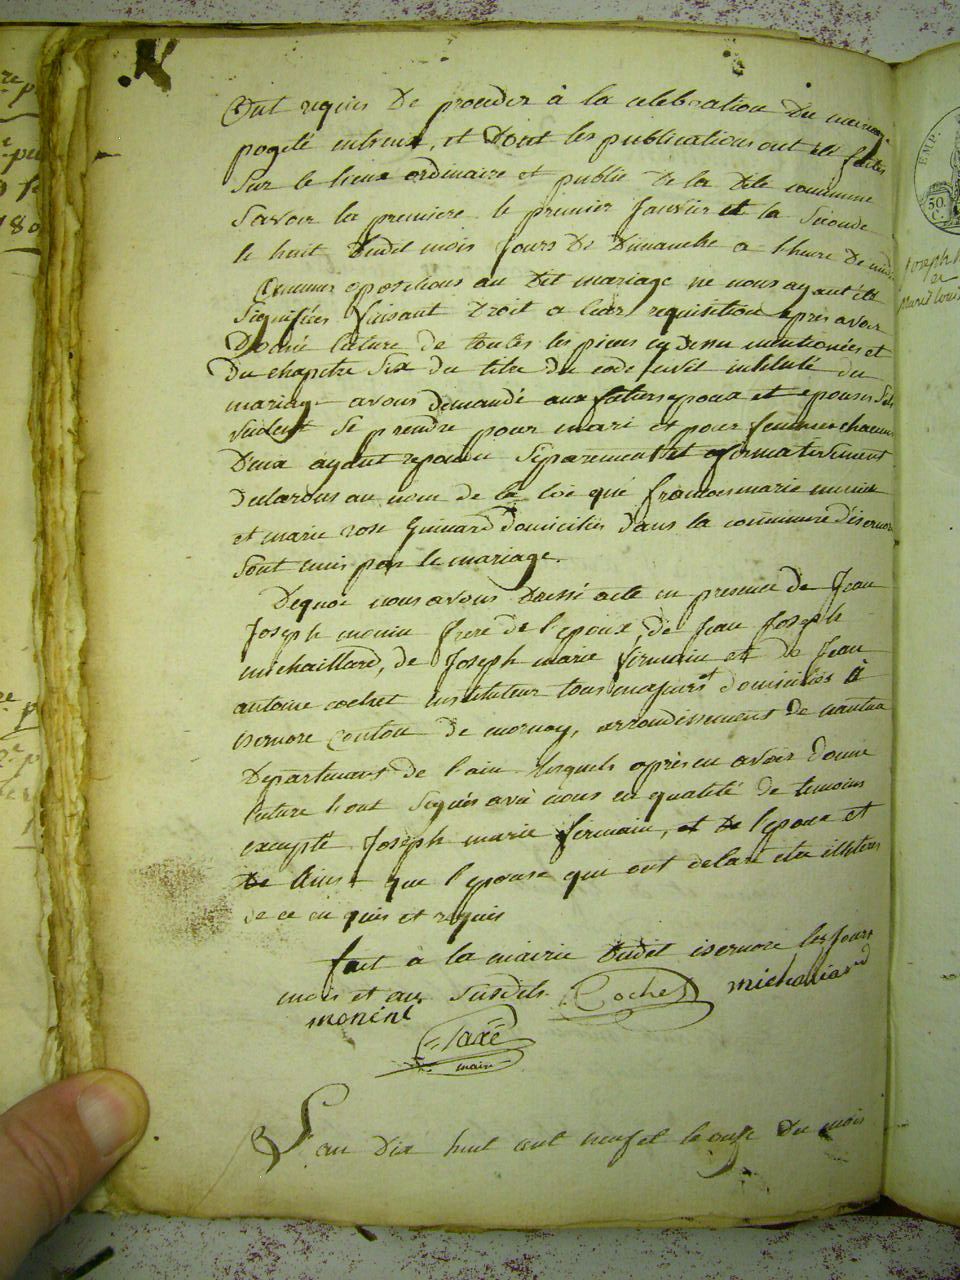 Ont requis De proceder à la celebration Du mariage
projeté entreux, et Dont les publications ont été faites
Sur le lieux ordinaire et public De la Dite commune
Savoir la premiere le premier Janvier et la Seconde
le huit Dudit mois Jours De Dimanche a l'heure De midi
Aucunes oposetions au Dit mariage ne nous ayant été
Signifiées faisant Droit a leur requisition apres avoir
Donné lature de toutes les pieces cy Dessu mentionées et
Du chapitre Six du titre du code civil intitulé du
mariage avons demandé aux futurs epoux et epouse Sils
veulent Se prendre pour mari et pour femme chacun
Deux ayant repondu Separement et afirmativement
Declarons au nom de la loi que francois marie monin
et marie rose guinard domiciliés dans la commune disernore
Sont unis par le mariage
Dequoi nous avons Dressé acte en presence de Jean
Joseph monin frere de l'epoux, de Jean Joseph
michaillard, de Joseph marie firmain et de Jean
antoine cochet instituteur tous majeurs et domiciliés à
isernore canton de mornay, arrondissement de nantua
Departement de l'ain lesquels apres en avoir donné
lature l'ont Signés avec nous en qualité de temoins
excepté Joseph marie firmain, et De l'epoux et
De Ainsi que l'epouse qui ont delaré etre illiteres
de ce en quis et requis
fait à la mairie Dudit isernore les Jour
mois et an Susdits. Cochet michaliard
monint
Taxé
maire
L'an Dix huit cent neuf et le onze Du mois
EMP.
50.
C.
Joseph
et
180